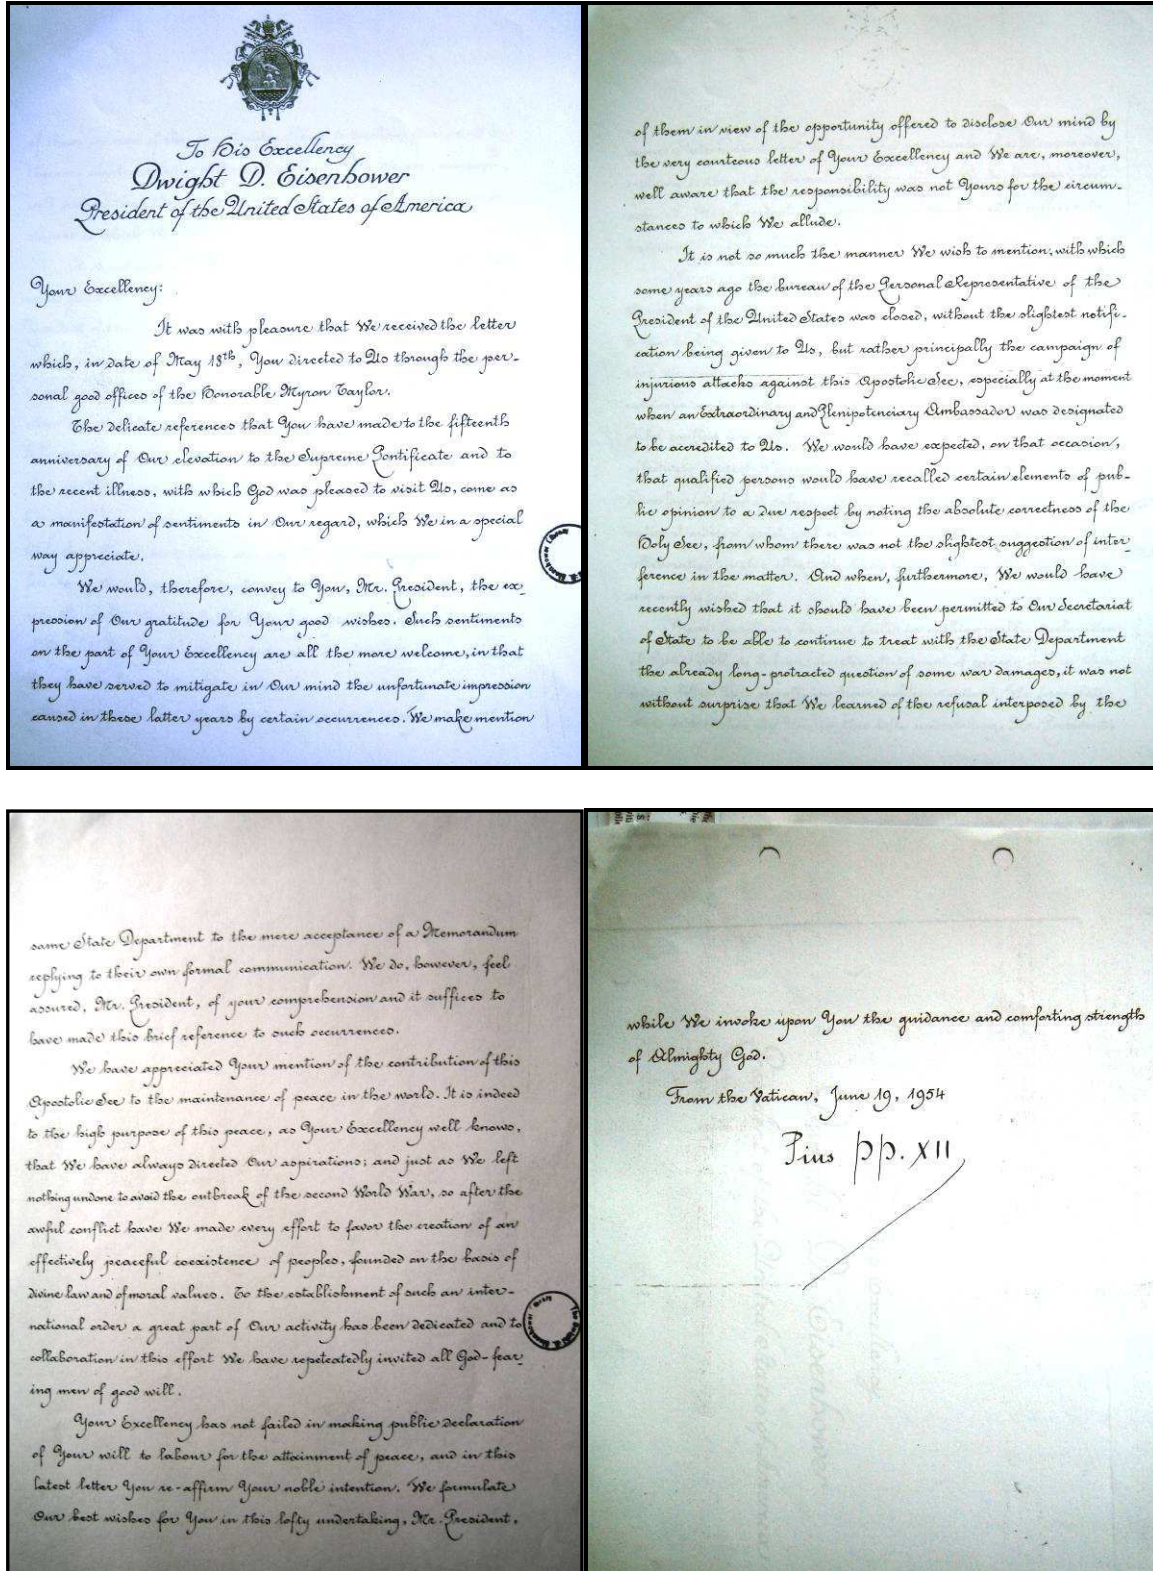 To His Excellency
Dwight D. Eisenhower
President of the United States of America
Your Excellency:
It was with pleasure that We received the letter
which, in date of May 13th, You directed to Us through the per-
sonal good offices of the Honorable Myron Taylor.
The delicate references that You have made to the fifteenth
anniversary of Our elevation to the Supreme Pontificate and to
the recent illness, with which God was pleased to visit Us, come as
a manifestation of sentiments in Our regard, which We in a special
way appreciate.
We would, therefore, convey to You, Mr. President, the ex-
pression of Our gratitude for Your good wishes. Such sentiments
on the part of Your Excellency are all the more welcome, in that
they have served to mitigate in Our mind the unfortunate impression
caused in these latter years by certain occurrences. We make mention
of them in view of the opportunity offered to disclose Our mind by
the very courteous letter of Your Excellency and We are, moreover,
well aware that the responsibility was not Yours for the circum-
stances to which We allude.
It is not so much the manner We wish to mention, with which
some years ago the bureau of the Personal Representative of the
President of the United States was closed, without the slightest notifi-
cation being given to Us, but rather principally the campaign of
injurious attacks against this Apostolic See, especially at the moment
when an Extraordinary and Plenipotenciary Ambassador was designated
to be accredited to Us. We would have expected, on that occasion,
that qualified persons would have recalled certain elements of pub-
lic opinion to a due respect by noting the absolute correctness of the
Holy See, from whom there was not the slightest suggestion of inter-
ference in the matter. And when, furthermore, We would have
recently wished that it should have been permitted to Our Secretariat
of State to be able to continue to treat with the State Department
the already long-protracted question of some war damages, it was not
without surprise that We learned of the refusal interposed by the
same State Department to the mere acceptance of a Memorandum
replying to their own formal communication. We do, however, feel
assured, Mr. President, of your comprehension and it suffices to
have made this brief reference to such occurrences.
We have appreciated Your mention of the contribution of this
Apostolic See to the maintenance of peace in the world. It is indeed
to the high purpose of this peace, as Your Excellency well knows,
that We have always directed Our aspirations; and just as We left
nothing undone to avoid the outbreak of the second World War, so after the
awful conflict have We made every effort to favor the creation of an
effectively peaceful coexistence of peoples, founded on the basis of
divine law and of moral values. To the establishment of such an inter-
national order a great part of Our activity has been dedicated and to
collaboration in this effort We have repeteatedly invited all God-fear-
ing men of good will.
Your Excellency has not failed in making public declaration
of Your will to labour for the attainment of peace, and in this
latest letter You re-affirm Your noble intention. We formulate
Our best wishes for You in this lofty undertaking, Mr. President,
while We invoke upon You the guidance and comforting strength
of Almighty God.
From the Vatican, June 19, 1954
Pius pp. XII